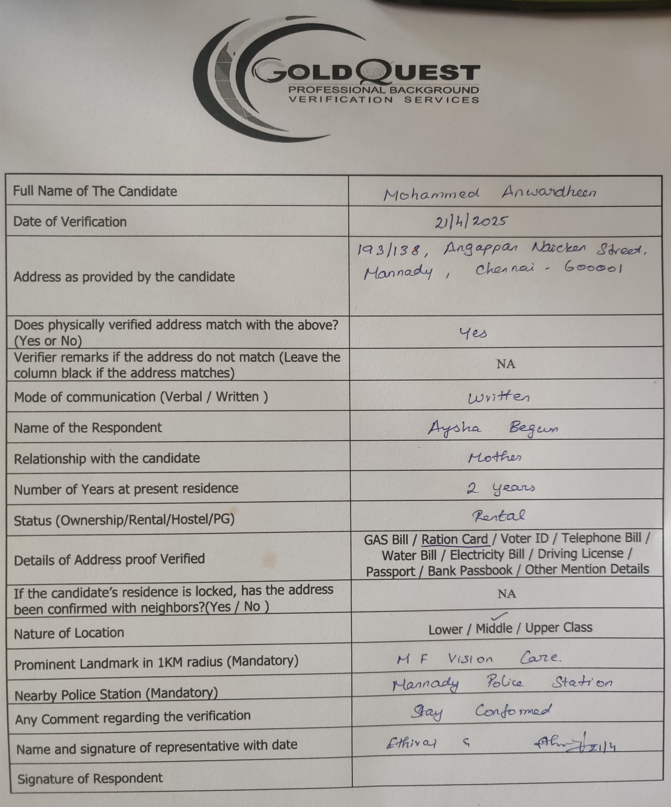 GOLDQUEST
PROFESSIONAL BACKGROUND
VERIFICATION SERVICES
Full Name of The Candidate
Mohammed Anwardheen
Date of Verification
21/4/2025
Address as provided by the candidate
193/138, Angappan Naicken Street,
Mannady, Chennai - 600001
Does physically verified address match with the above?
(Yes or No)
Yes
Verifier remarks if the address do not match (Leave the
column black if the address matches)
NA
Mode of communication (Verbal / Written )
Written
Name of the Respondent
Aysha Begum
Relationship with the candidate
Mother
Number of Years at present residence
2 years
Status (Ownership/Rental/Hostel/PG)
Rental
Details of Address proof Verified
GAS Bill / Ration Card / Voter ID / Telephone Bill /
Water Bill / Electricity Bill / Driving License /
Passport / Bank Passbook / Other Mention Details
If the candidate's residence is locked, has the address
been confirmed with neighbors?(Yes / No )
NA
Nature of Location
Lower / Middle / Upper Class
Prominent Landmark in 1KM radius (Mandatory)
M F Vision Care.
Nearby Police Station (Mandatory)
Mannady Police Station
Any Comment regarding the verification
Stay Conformed
Name and signature of representative with date
Ethiraj S 21/4
Signature of Respondent